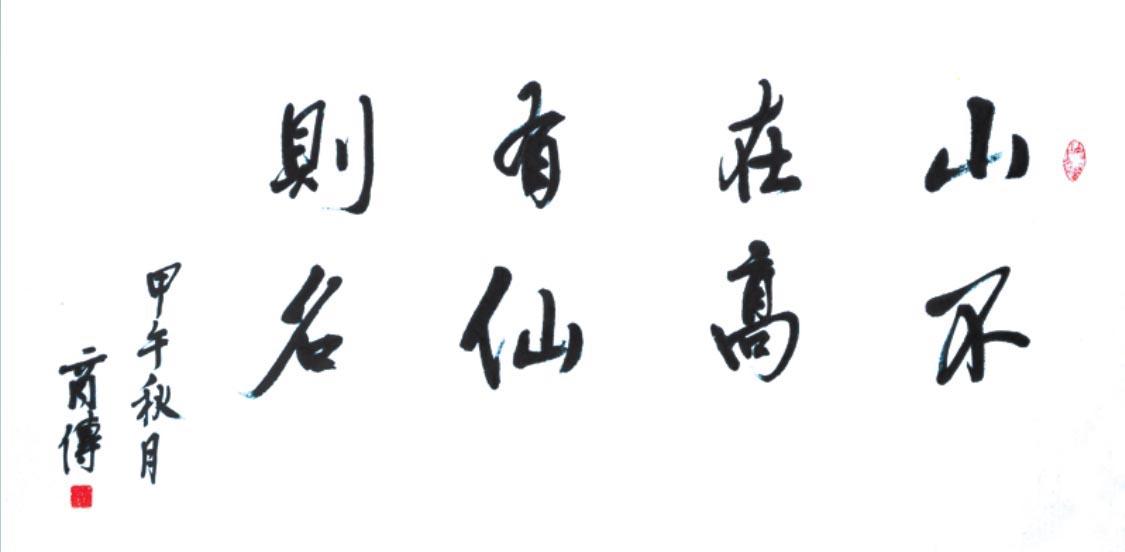 山不
在高
有仙
則名
甲午秋月
商傳